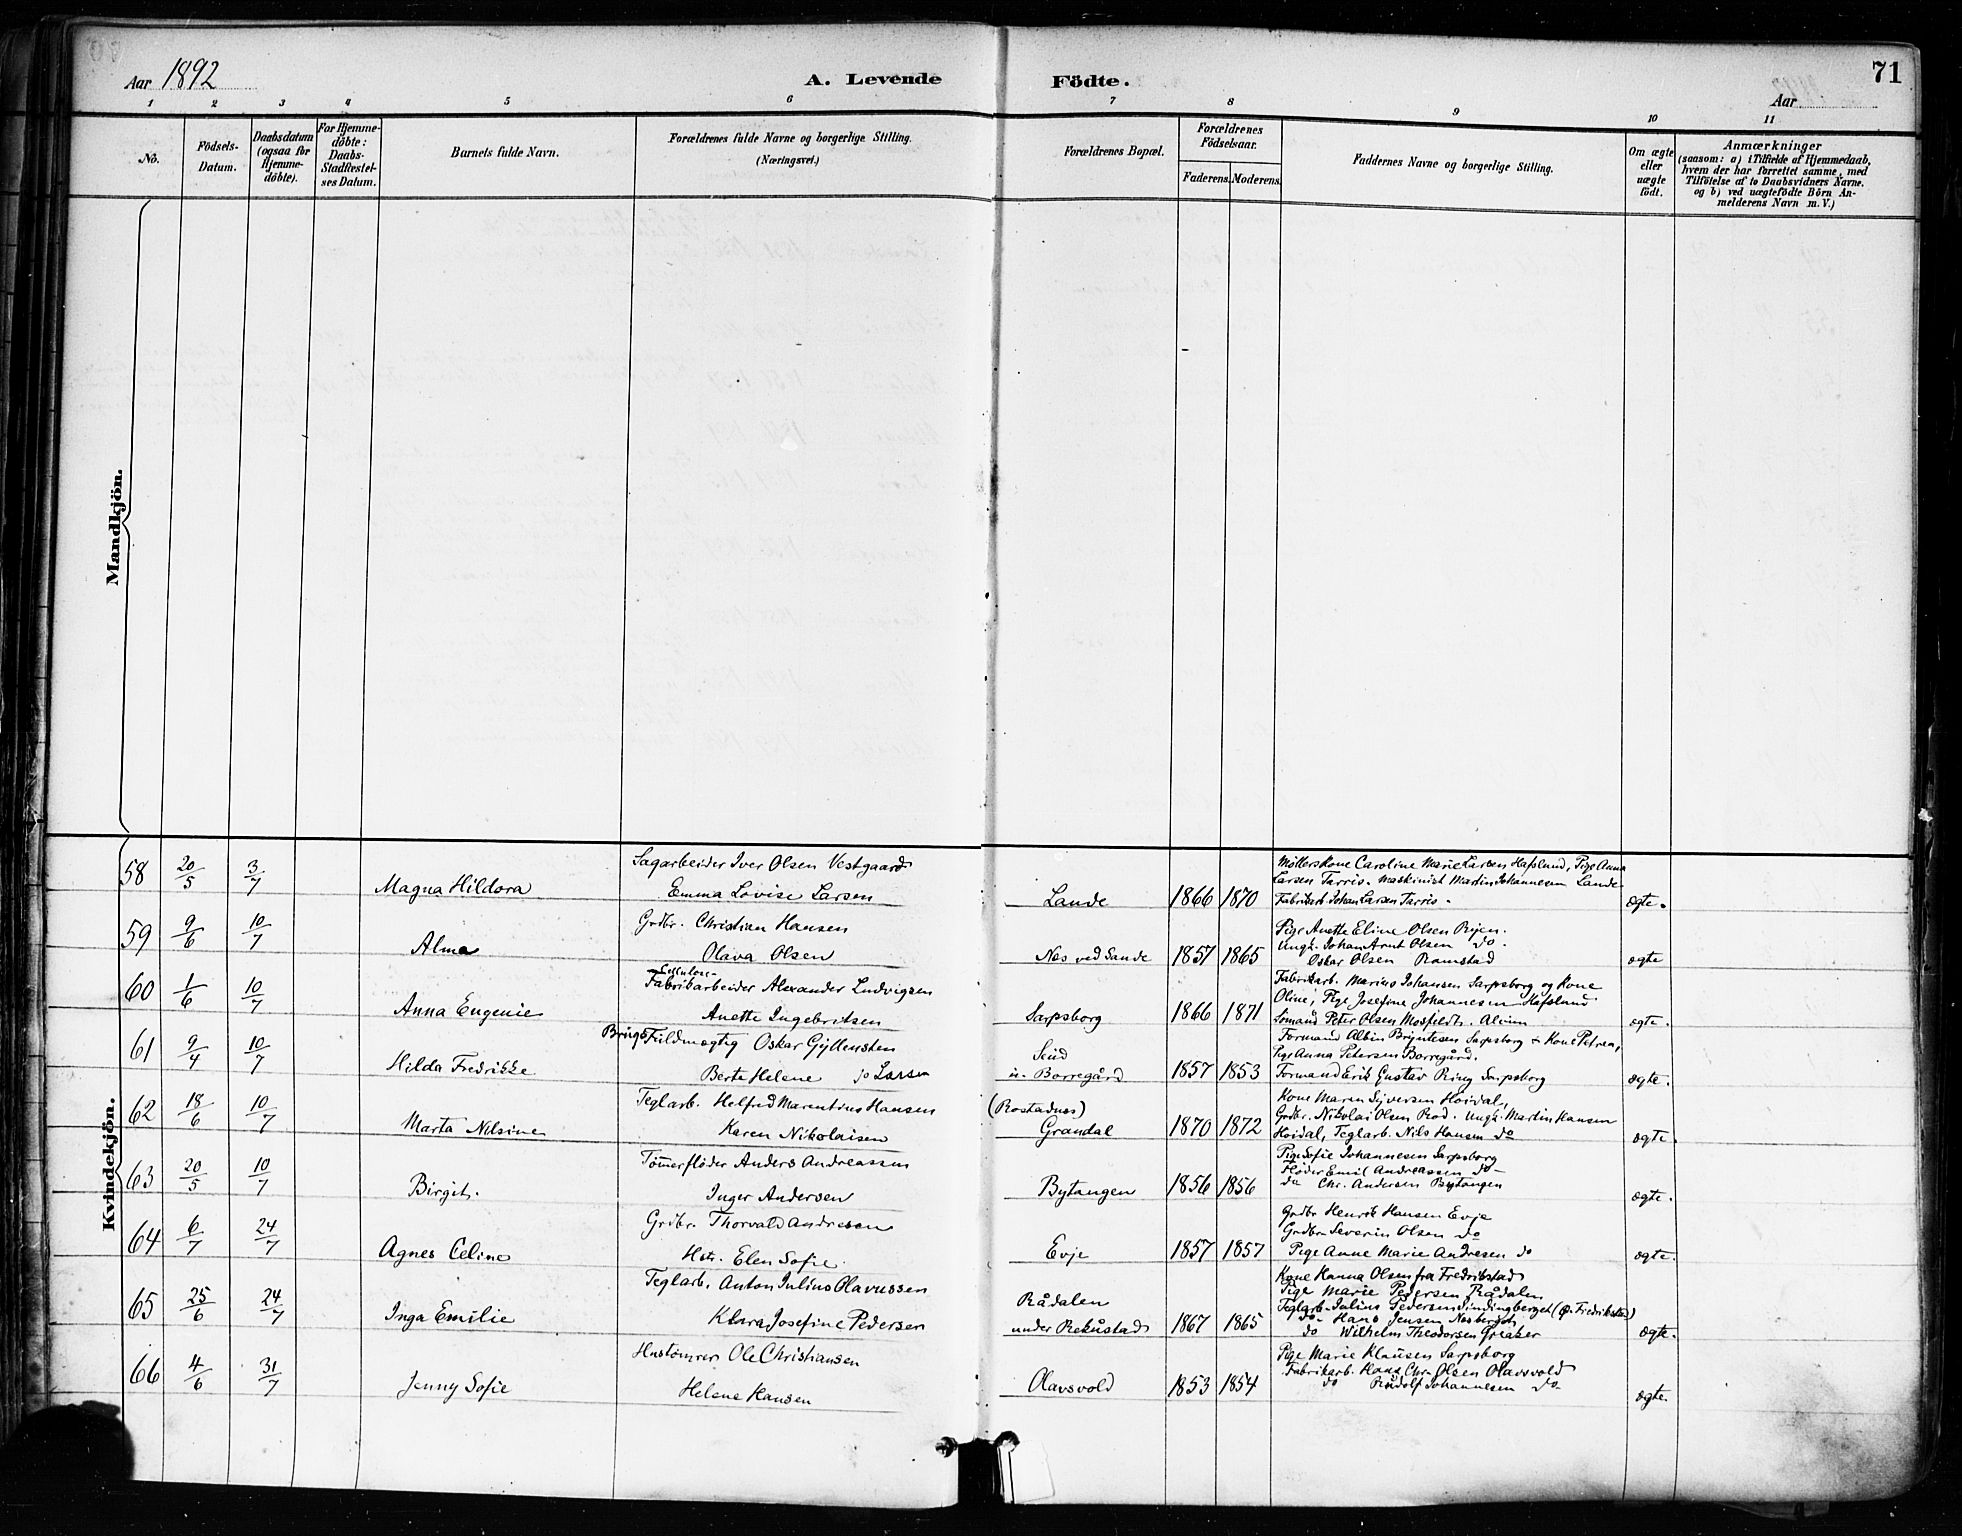 Aar 1892
A. Levende Födte.
71
Aar
1 2 3 4 5 6 7 8 9 10 11
No.
Födsels-Datum.
Daabsdatum (ogsaa for Hjemme-döbte).
For Hjemme-döbte: Daabs-Stadfæstel-ses Datum.
Barnets fulde Navn.
Forældrenes fulde Navne og borgerlige Stilling.
(Næringsvei.)
Forældrenes Bopæl.
Forældrenes Födselsaar.
Faderens. Moderens.
Faddernes Navne og borgerlige Stilling.
Om ægte eller uægte födt.
Anmærkninger
(saasom: a) i Tilfælde af Hjemmedaab,
hvem der har forrettet samme, med
Tilföielse af to Daabsvidners Navne.
og b) ved uægtefödte Börn An-
melderens Navn m. V.)
Mandkjön.
Kvindekjön.
58 20/5 3/7 Magna Hildora
Sagarbeider Iver Olsen Vestgaard
Emma Lovise Larsen
Lande 1866 1870
Møllerskone Caroline Marie Larsen Hafslund, Pige Anna
Larsen Tarris. Maskinist Martin Johannesen Lande
Fabrikarb Johan Larsen Tarris.
ægte.
59 9/6 10/7 Alma
Grdbr. Christian Hansen
Olava Olsen
Nes ved Sande 1857 1865
Pige Anette Eline Olsen
Ungk. Johan Arnt Olsen do.
Oskar Olsen Ramstad
ægte
60 1/6 10/7 Anna Eugenie
Cellulose-
Fabrikarbeider Alexander Ludvigsen
Anette Ingebritsen
Sarpsborg 1866 1871
Fabrikarb. Marius Johansen Sarpsborg og Kone
Oline, Pige Josefine Johannesen Hafslund
Sømand Peter Olsen Mosfeldt, Alvim
ægte.
61 9/4 10/7 Hilda Fredrikke
Brugsfuldmægtig Oskar Gyllensten
Berte Helene Larsen
u. Borregård 1857 1853
Formand Albin Bryntesen Sarpsborg & Kone Petrea,
Pige Anna Petersen Borregård.
Formand Erik Gustav Ring Sarpsborg
ægte.
62 18/6 10/7 Marta Nilsine
Teglarb. Helfred Marentius Hansen
Karen Nikolaisen
(Rostadnes)
Grandal 1870 1872
Kone Maren Syversen Hoidal,
Grdbr. Nikolai Olsen Rød. Ungk. Martin Hansen
Hoidal, Teglarb. Nils Hansen do
ægte.
63 20/5 10/7 Birgit.
Tømmerfløder Anders Andreassen
Inger Andersen
Bytangen 1856 1856
Pige Sofie Johannesen Sarpsborg
Fløder Emil Andreassen do-
do Chr. Andersen Bytangen
ægte.
64 6/7 24/7 Agnes Celine
Grdbr. Thorvald Andresen
Hstr. Elen Sofie.
Evje 1857 1857
Grdbr Henrik Hansen Evje
Grdbr Severin Olsen do
Pige Anne Marie Andresen do
ægte.
65 25/6 24/7 Inga Emilie
Teglarb. Anton Julius Olavussen
Klara Josefine Pedersen
Rådalen
under Rekustad 1867 1865
Kone Hanna Olsen fra Fredrikstad
Pige Marie Pedersen Rådalen
Teglarb. Julius Pedersen (Ø. Fredrikstad)
do- Hans Jensen
do Wilhelm Theodorsen Greaker
ægte.
66 4/6 31/7 Jenny Sofie
Hustømrer Ole Christiansen
Helene Hansen
Olavsvold 1853 1854
Pige Marie Klausen Sarpsborg
Fabrikarb. Hans Chr. Olsen Olavsvold
do Rudolf Johannesen do
ægte.